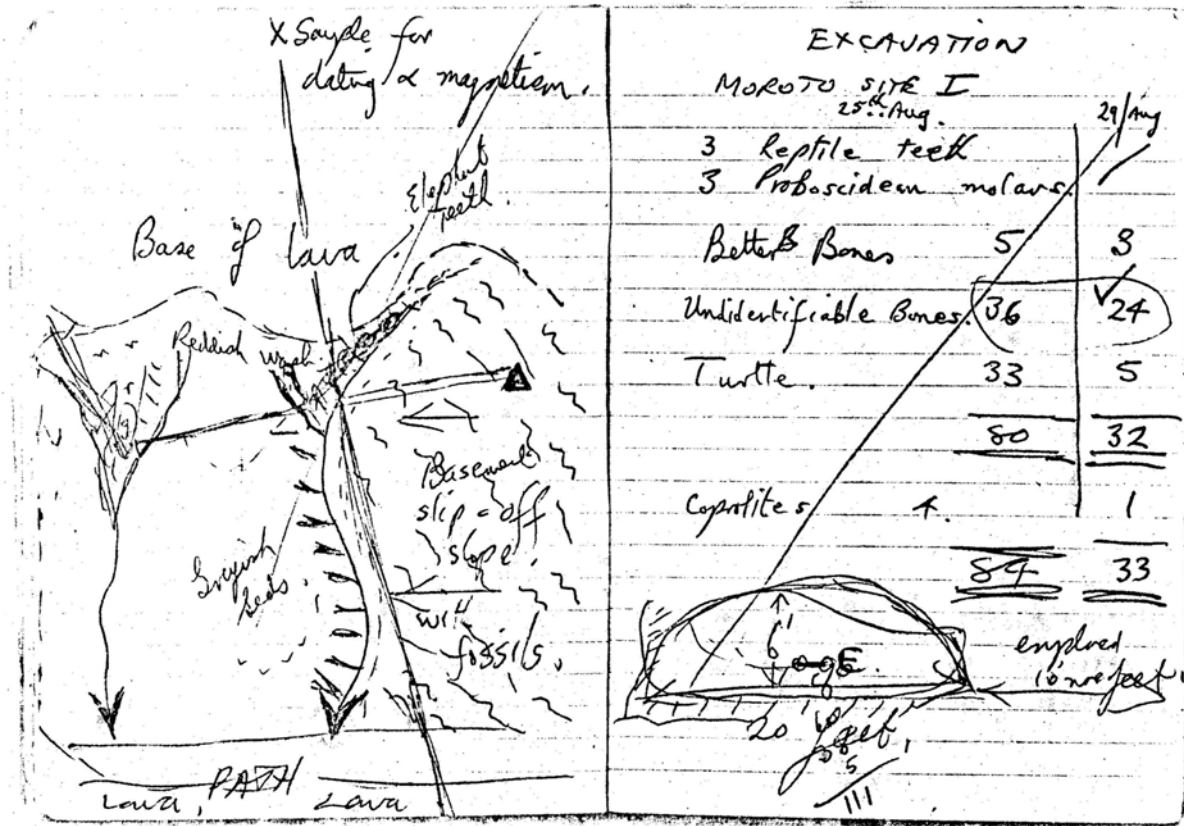 X Sample for
dating & magnetism.
Elephant
teeth.
Base of Lava
Reddish wash
Basement
slip-off
slope
Greyish
beds.
with
fossils.
PATH
Lava, Lava
EXCAVATION
MOROTO SITE I
25th Aug. 29/Aug
3 Reptile teeth
3 Proboscidean molars.
Better Bones 5 3
Undidentifiable Bones. 36 24
Turtle. 33 5
80 32
Coprolites 4. 1
84 33
6'
20 feet,
5
111